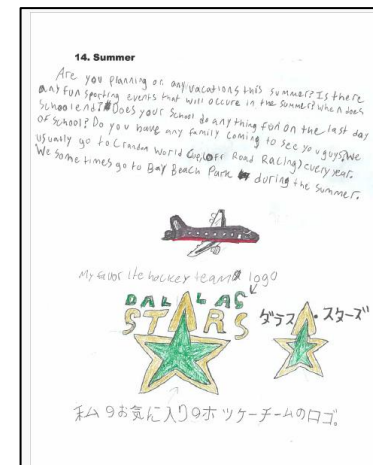 14. Summer
Are you planning on any vacations this summer? Is there
any fun sporting events that will occure in the summer? When does
School end? Does your School do any thing fun on the last day
of school? Do you have any family coming to see you guys? We
usually go to Crandon World Cup (Off Road Racing) every year.
We some times go to Bay Beach Park during the summer.
My favorite hockey team logo
DALLAS
STARS
ダラス・スターズ
私の お気に入りのホッケーチームのロゴ。